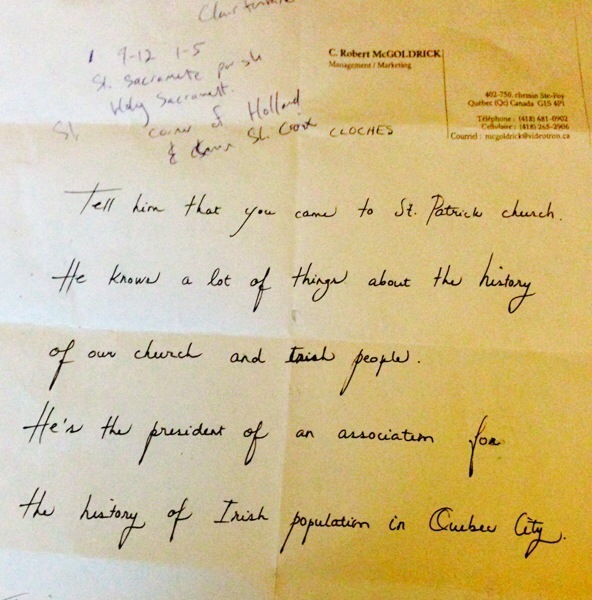 1 9-12 1-5
St. Sacramete
Holy Sacrament.
St
corner of Holland
& St. Croix CLOCHES
C. Robert McGOLDRICK
Management / Marketing
402-750, chemin Ste-Foy
Québec (Qc) Canada G1S 4P1
Téléphone : (418) 681-0902
Cellulaire : (418) 265-2906
Courriel : mcgoldrick@videotron.ca
Tell him that you came to St. Patrick church.
He knows a lot of things about the history
of our church and Irish people.
He's the president of an association for
the history of Irish population in Quebec City.